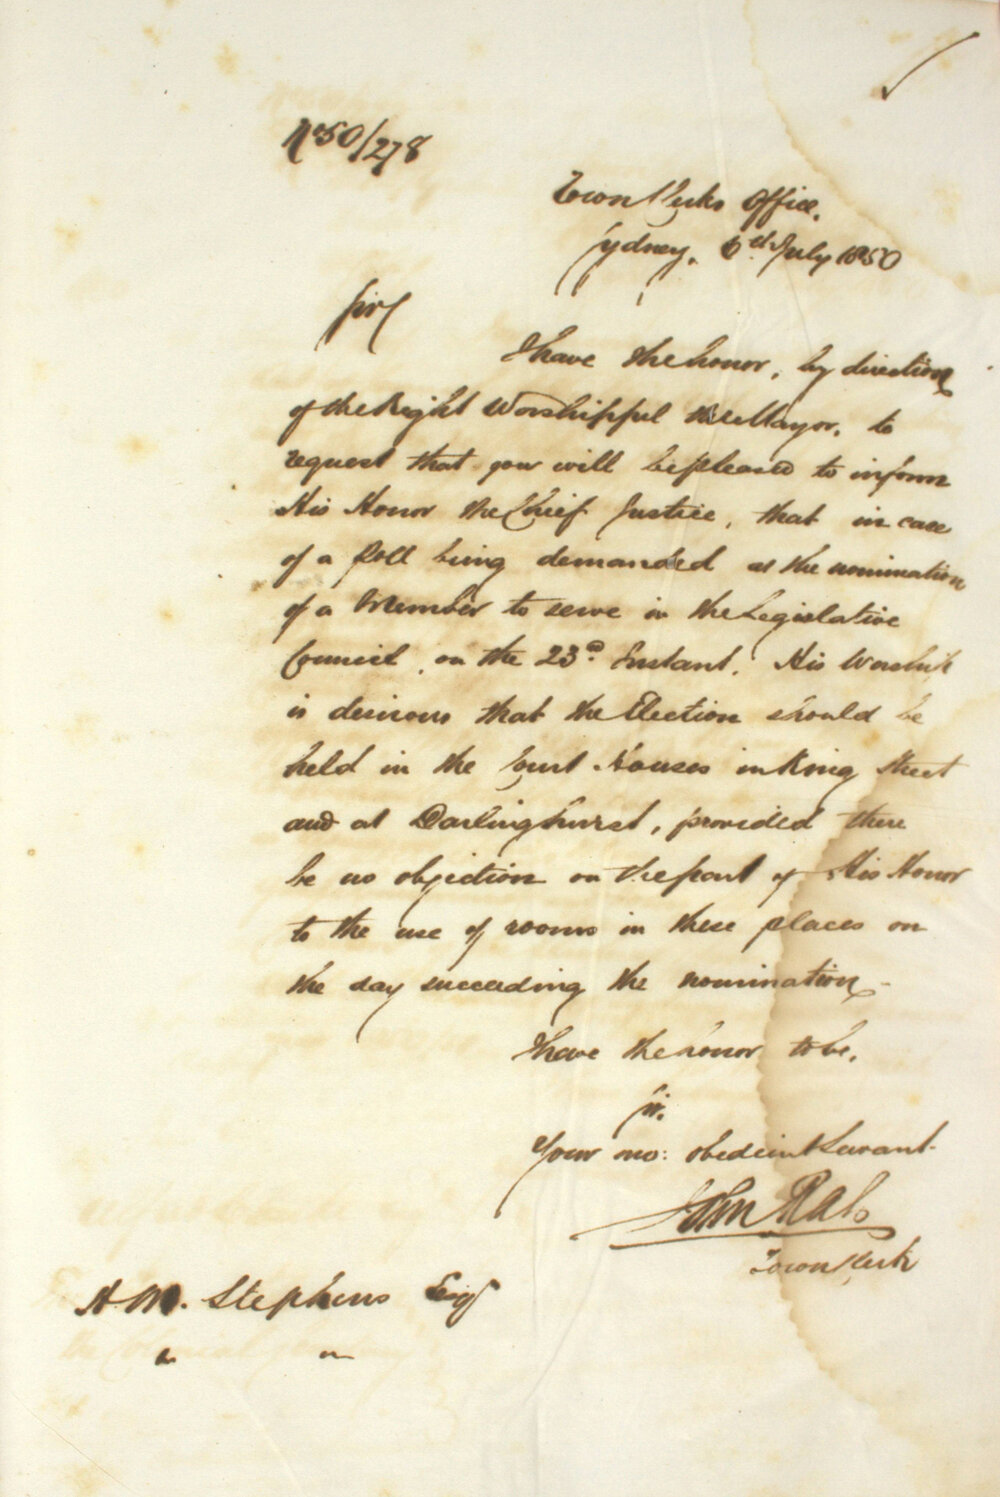 No 50/278
Town Clerks Office.
Sydney, 6th July 1850
Sir,
I have the honor, by direction
of the Right Worshipful the Mayor, to
request that you will be pleased to inform
His Honor the Chief Justice, that in case
of a Poll being demanded at the nomination
of a Member to serve in the Legislative
Council, on the 23rd Instant. His Worship
is desirous that the Election should be
held in the Court Houses in King Street
and at Darlinghurst, provided there
be no objection on the part of His Honor
to the use of rooms in these places on
the day succeeding the nomination.
I have the honor to be,
Sir,
Your mo: obedient Servant.
John Rae
Town Clerk
A. M. Stephens Esq
" "